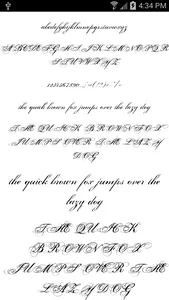 4:34 PM
abcdefghijklmnopqrstuvwxyz
ABCDEFGHIJKLMNOPQR
STUVWXYZ
1234567890
the quick brown fox jumps over the lazy dog
THE QUICK BROWN FOX
JUMPS OVER THE LAZY
DOG
the quick brown fox jumps over the
lazy dog
THE QUICK
BROWN FOX
JUMPS OVER THE
LAZY DOG